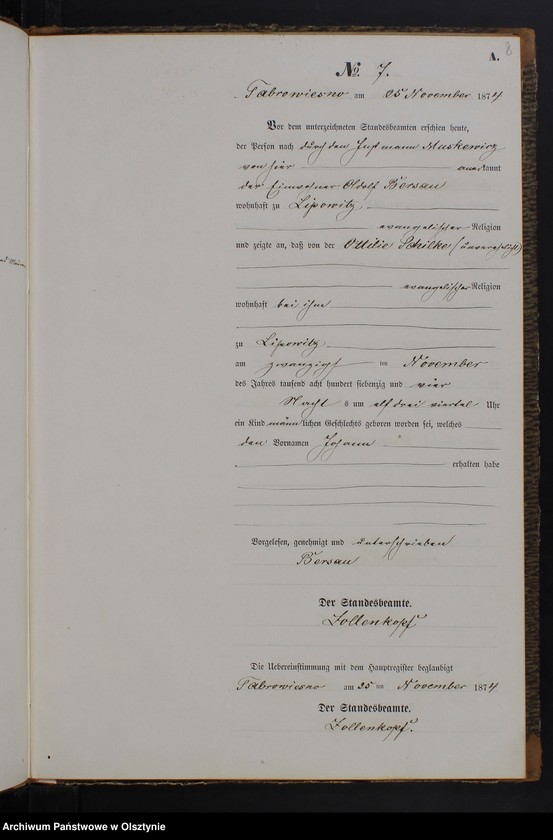 A.
8
No. 7.
Tabrowiesno am 25 November 1874
Vor dem unterzeichneten Standesbeamten erschien heute,
der Person nach durch den Instmann Muskewitz
von hier anerkannt
der Einwohner Adolf Bersau
wohnhaft zu Lipowitz
evangelischer Religion
und zeigte an, daß von der Ottilie Schilke (unverehelicht)
evangelischer Religion
wohnhaft bei ihm
zu Lipowitz
am zwanzigst ten November
des Jahres tausend acht hundert siebenzig und vier
Nacht s um elf drei viertel Uhr
ein Kind männlichen Geschlechts geboren worden sei, welches
den Vornamen Johann
erhalten habe
Vorgelesen, genehmigt und unterschrieben
Bersau
Der Standesbeamte.
Zollenkopf
Die Uebereinstimmung mit dem Hauptregister beglaubigt
Tabrowiesno am 25 ten November 1874
Der Standesbeamte.
Zollenkopf.
Archiwum Państwowe w Olsztynie